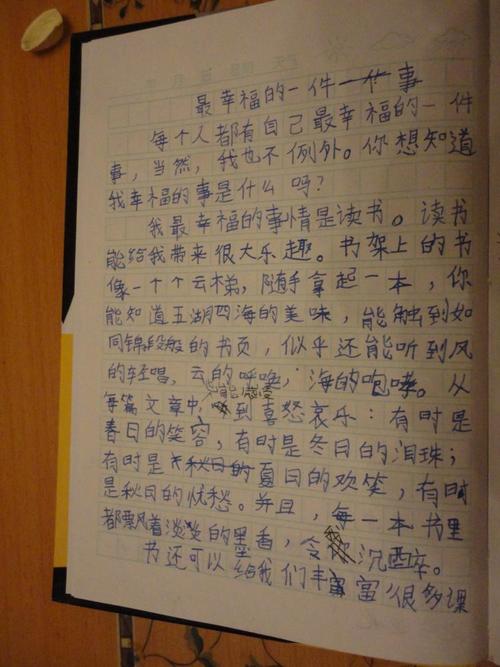 最幸福的一件事
每个人都有自己最幸福的一件
事，当然，我也不例外。你想知道
我幸福的事是什么吗？
我最幸福的事情是读书。读书
能给我带来很大乐趣。书架上的书
像一个个云梯，随手拿起一本，你
能知道五湖四海的美味，能触到如
同锦段般的书页，似乎还能听到风
的轻唱，云的呼唤，海的咆哮。从
每篇文章中，到喜怒哀乐：有时是
春日的笑容，有时是冬日的泪珠；
有时是夏日的欢笑，有时
是秋日的忧愁。并且，每一本书里
都飘着淡淡的墨香，令沉醉。
书还可以给我们丰富很多课